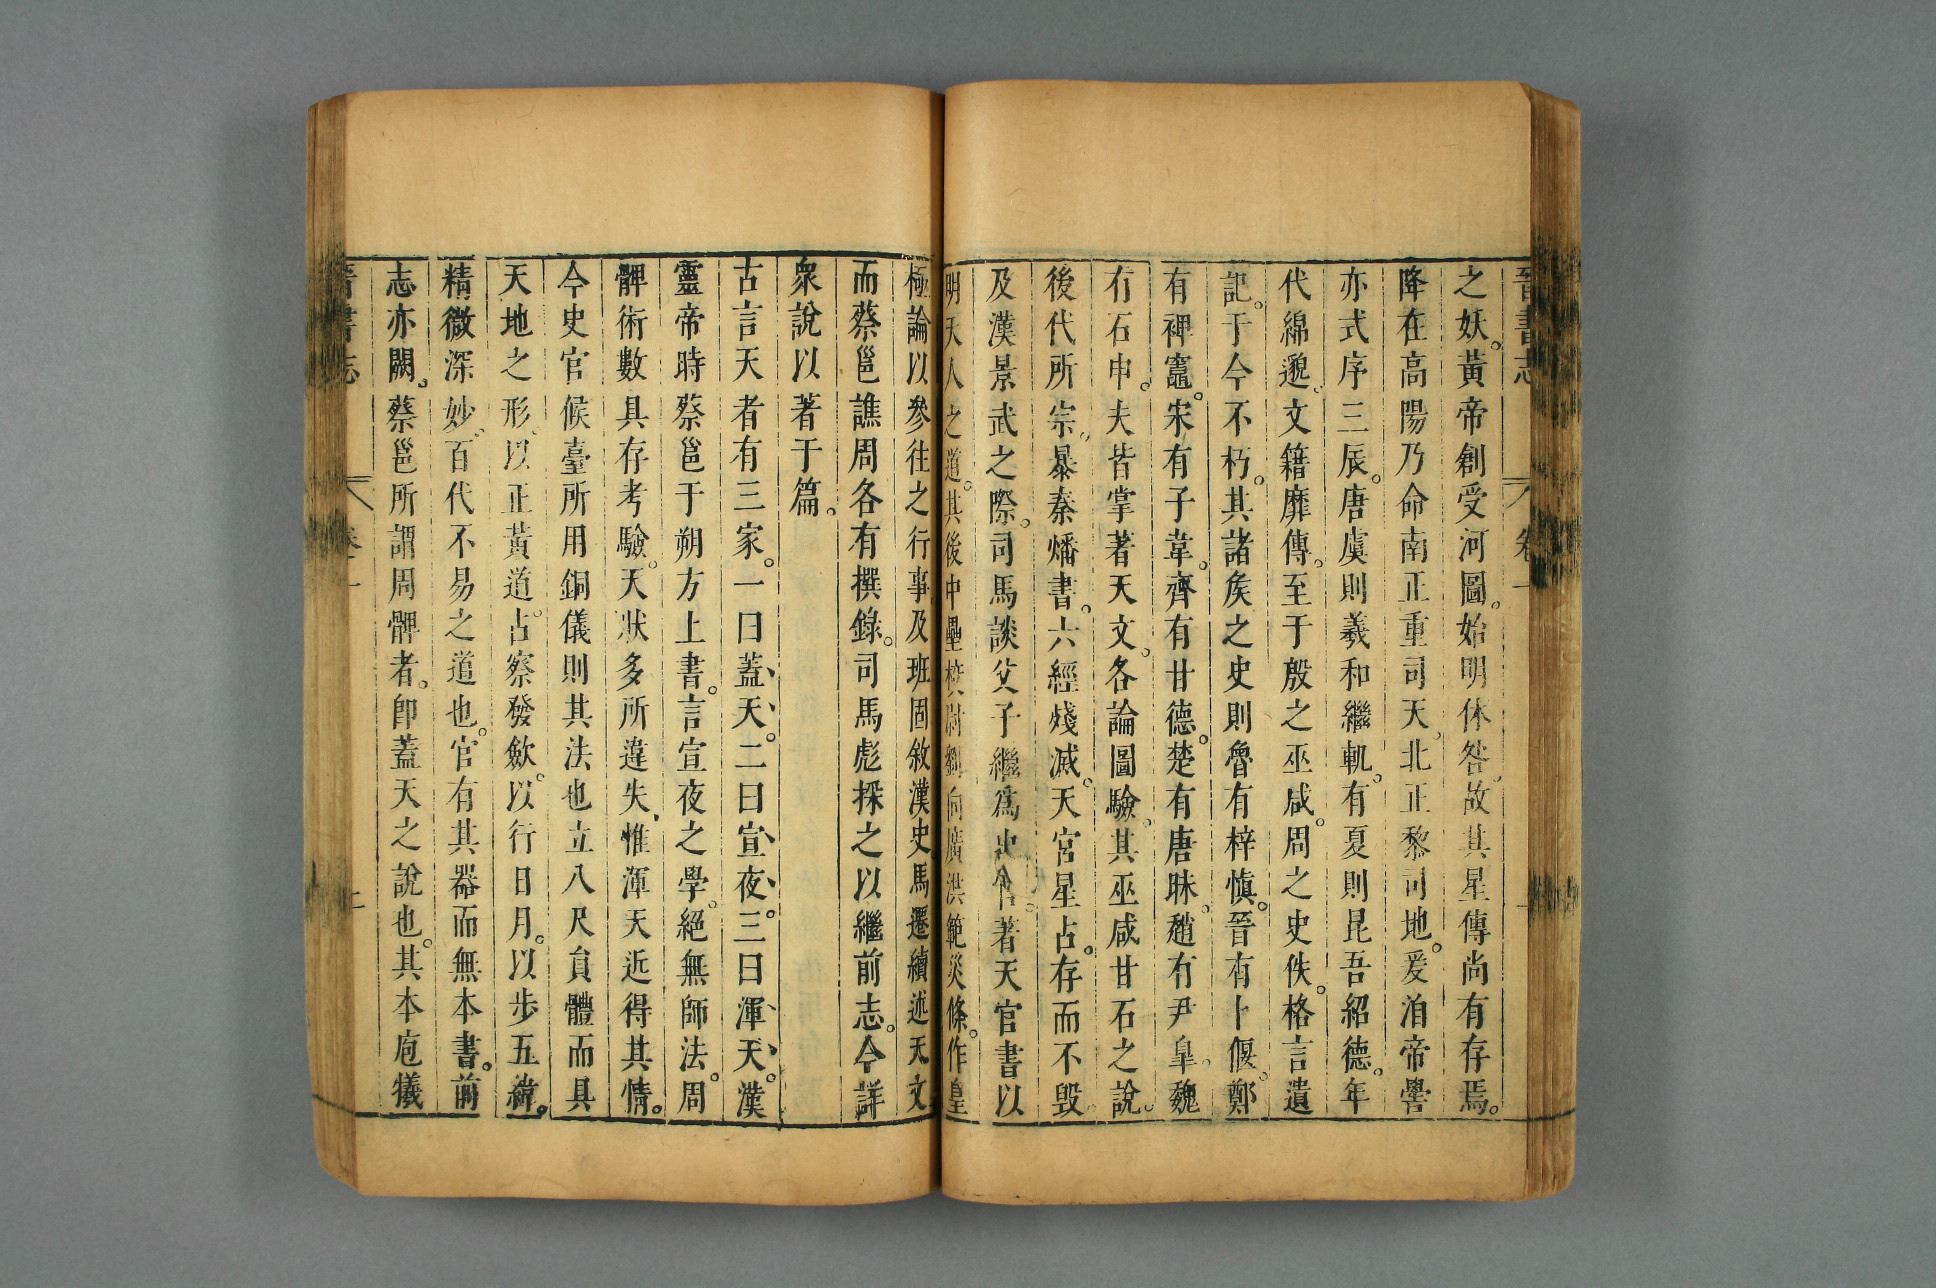 晉書志 卷一
之妖。黃帝創受河圖。始明休咎。故其星傳尚有存焉。
降在高陽乃命南正重司天、北正黎司地。爰洎帝嚳
亦式序三辰。唐虞則羲和繼軌。有夏則昆吾紹德。年
代綿邈、文籍靡傳。至于殷之巫咸。周之史佚。格言遺
記。于今不朽。其諸矦之史則魯有梓慎。晉有卜偃。鄭
有裨竈。宋有子韋。齊有甘德。楚有唐昧。趙有尹臯。魏
有石申。夫皆掌著天文。各論圖驗。其巫咸甘石之說。
後代所宗、暴秦燔書。六經殘滅。天官星占。存而不毀。
及漢景武之際。司馬談父子繼爲史官。著天官書以
明天人之道。其後中壘校尉劉向廣洪範災條。作皇
極論以參往之行事、及班固敘漢史、馬遷續述天文
而蔡邕譙周各有撰錄。司馬彪採之以繼前志。今詳
衆說以著于篇。
古言天者有三家。一曰蓋天。二曰宣夜。三曰渾天。漢
靈帝時蔡邕于朔方上書。言宣夜之學。絕無師法。周
髀術數具存考驗。天狀多所違失、惟渾天近得其情。
今史官候臺所用銅儀則其法也立八尺員體而具
天地之形、以正黃道。占察發斂。以行日月。以步五緯。
精微深妙、百代不易之道也。官有其器而無本書。前
志亦闕。蔡邕所謂周髀者。卽蓋天之說也。其本庖犧
晉書志 卷一 二